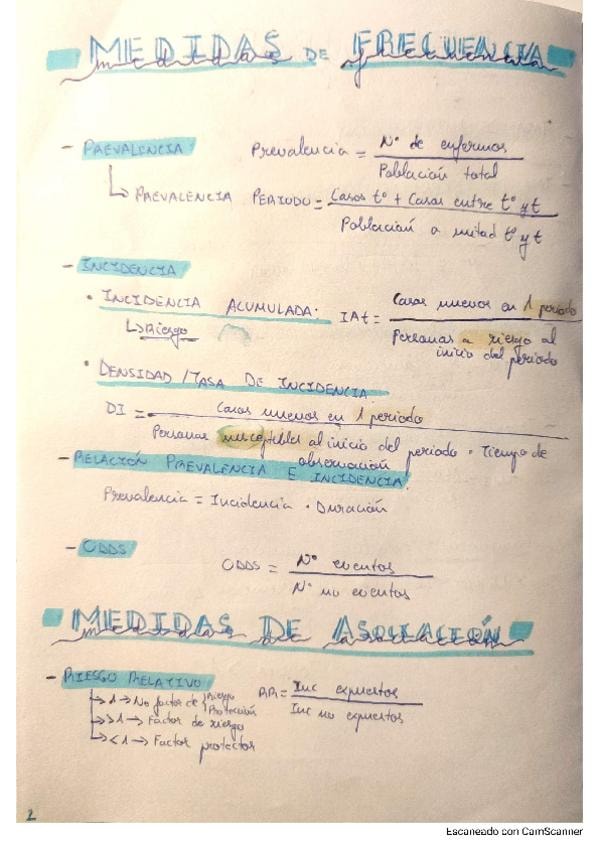 MEDIDAS DE FRECUENCIA
- PREVALENCIA: Prevalencia = Nº de enfermos
Población total
↳ PREVALENCIA PERIODO = Casos tº + Casos entre tº y t
Población a mitad tº y t
- INCIDENCIA:
• INCIDENCIA ACUMULADA: IAt = Casos nuevos en 1 periodo
↳ Riesgo Personas a riesgo al
inicio del periodo
• DENSIDAD / TASA DE INCIDENCIA:
DI = Casos nuevos en 1 periodo
Personas susceptibles al inicio del periodo · Tiempo de
observación
- RELACIÓN PREVALENCIA E INCIDENCIA:
Prevalencia = Incidencia · Duración
- ODDS:
ODDS = Nº eventos
Nº no eventos
MEDIDAS DE ASOCIACIÓN
- RIESGO RELATIVO
↳ 1 → No factor de Riesgo RR = Inc expuestos
Protección Inc no expuestos
↳ >1 → Factor de riesgo
↳ <1 → Factor protector
2
Escaneado con CamScanner